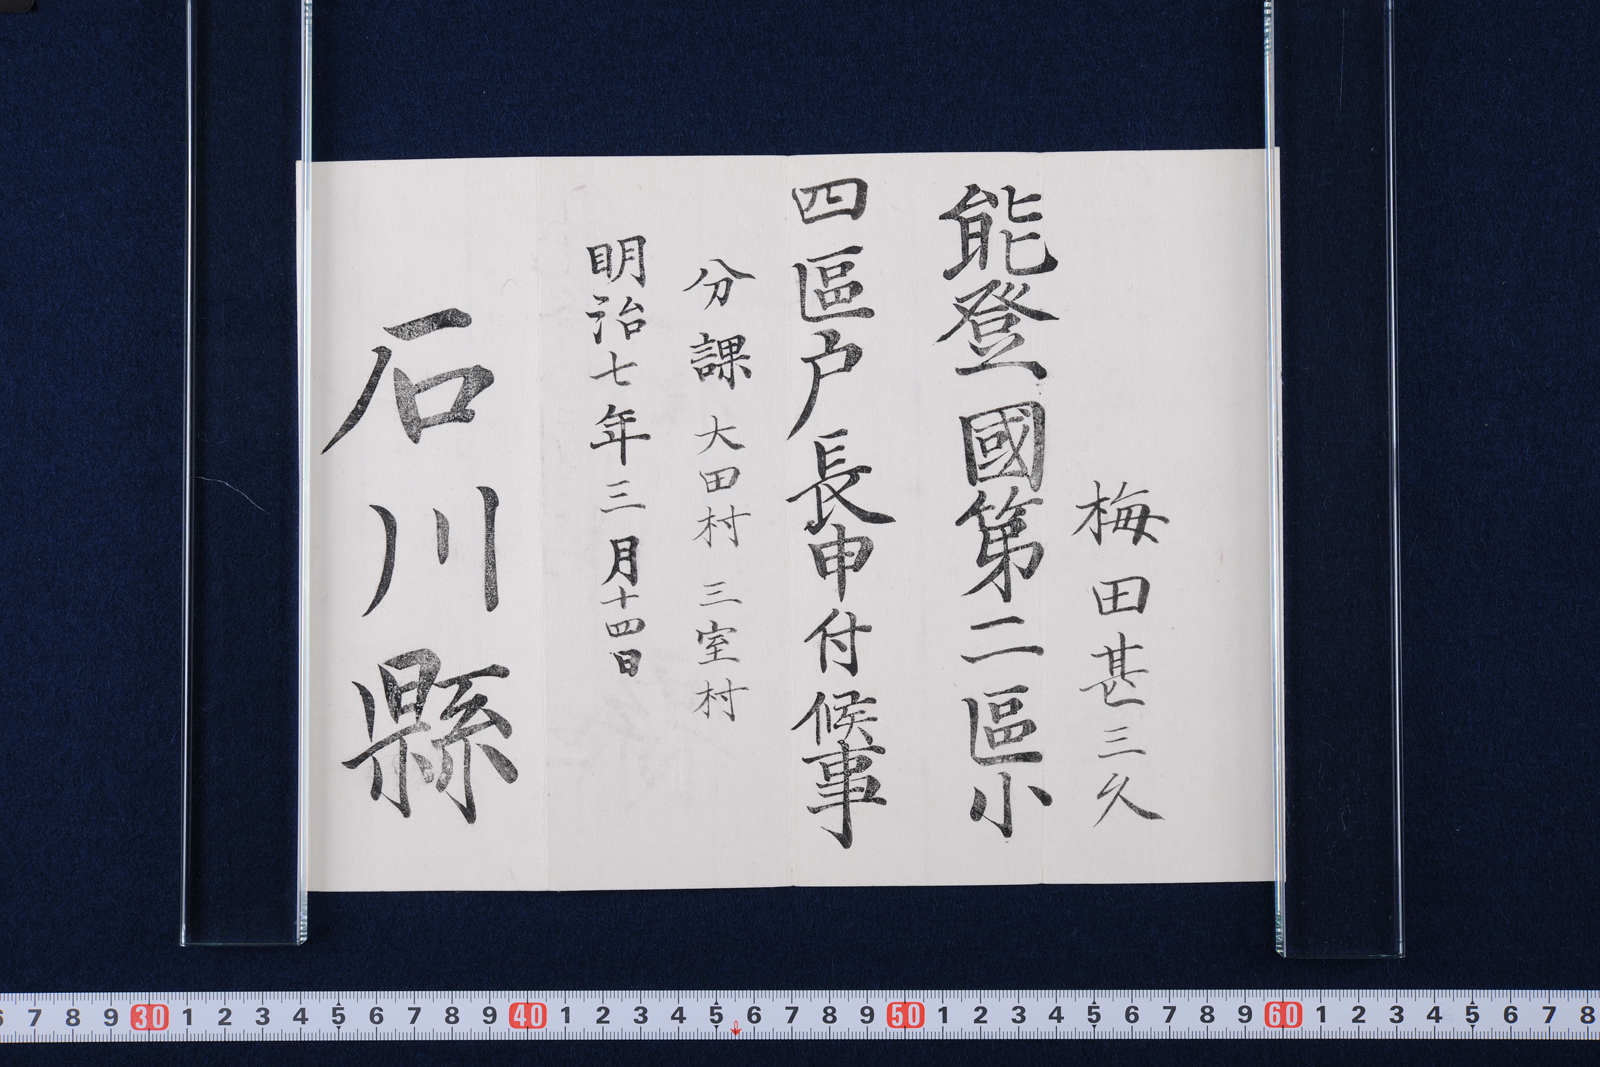 梅田甚三久
能登國第二區小
四區戸長申付候事
分課 大田村 三室村
明治七年三月十四日
石川縣
6 7 8 9 30 1 2 3 4 5 6 7 8 9 40 1 2 3 4 5 6 7 8 9 50 1 2 3 4 5 6 7 8 9 60 1 2 3 4 5 6 7 8